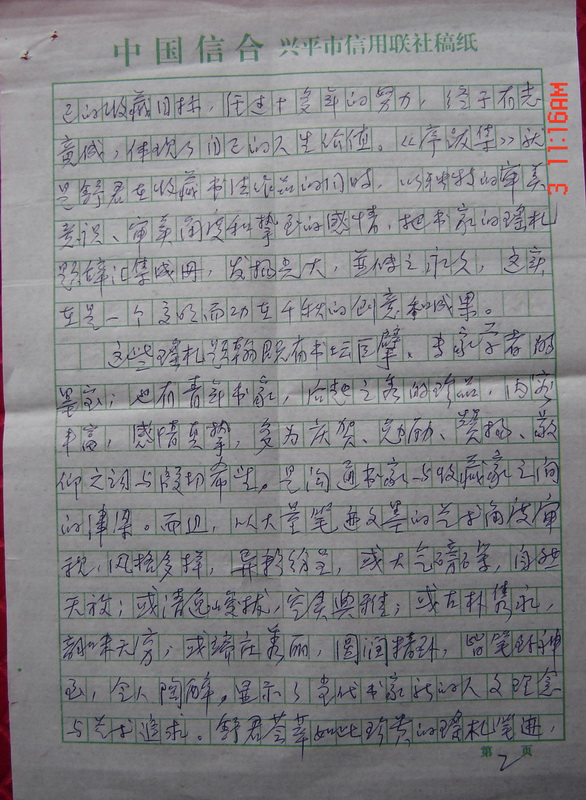 中国信合 兴平市信用联社稿纸
3 11:16AM
己的收藏目标，经过十多年的努力，终于有志
竟成，体现了自己的人生价值。《序跋集》就
是舒君在收藏书法作品的同时，以独特的审美
意识、审美角度和挚至的感情，把书家的瑶札
题辞汇集成册，发扬光大，并传之永久，这实
在是一个文明而功在千秋的创意和成果。
这些瑶札翰既有书坛巨擘、专家学者的
墨宝；也有青年书家，后起之秀的珍品，内容
丰富，感情真挚，多为庆贺、勉励、赞扬、敬
仰之词与殷切希望。是沟通书家与收藏家之间
的津梁。而且，以大量笔迹文墨的艺术角度审
视，风格多样，异彩纷呈，或大气磅礴，自然
天放；或清逸峻拔，空灵典雅；或古朴隽永，
无方；或端庄美丽，圆润精环，皆笔神
至，令人陶醉。显示了当代书家新的人文理念
与艺术追求。舒君荟萃如此珍贵的瑶札笔迹，
第2页